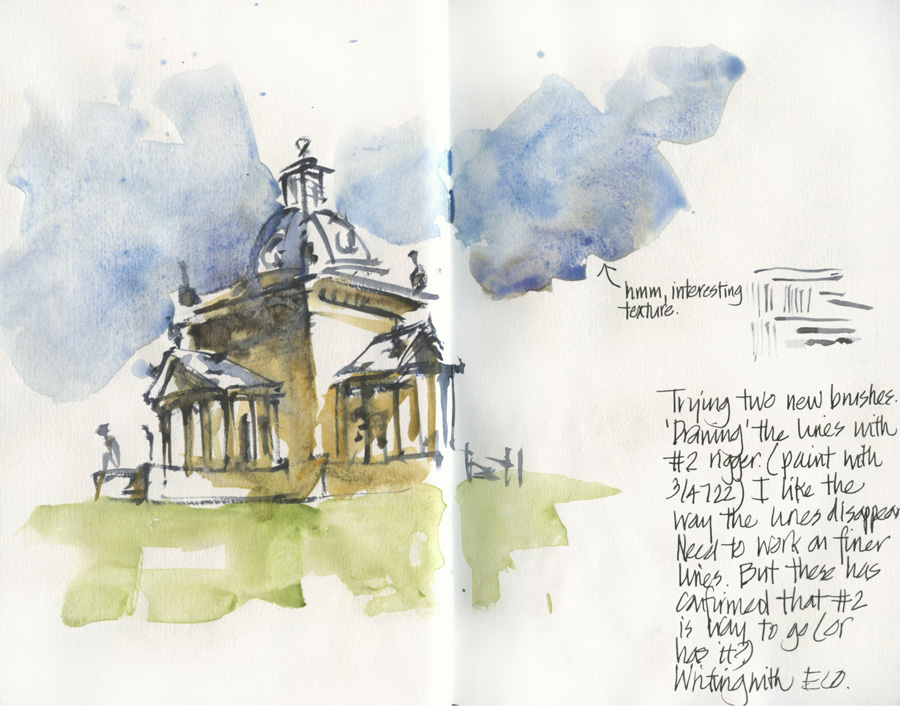 hmm, interesting
texture.
Trying two new brushes.
'Drawing' the lines with
#2 rigger. (paint with
3/4 722) I like the
way the lines disappear
Need to work on finer
lines. But these has
confirmed that #2
is way to go (or
has it?)
Writing with